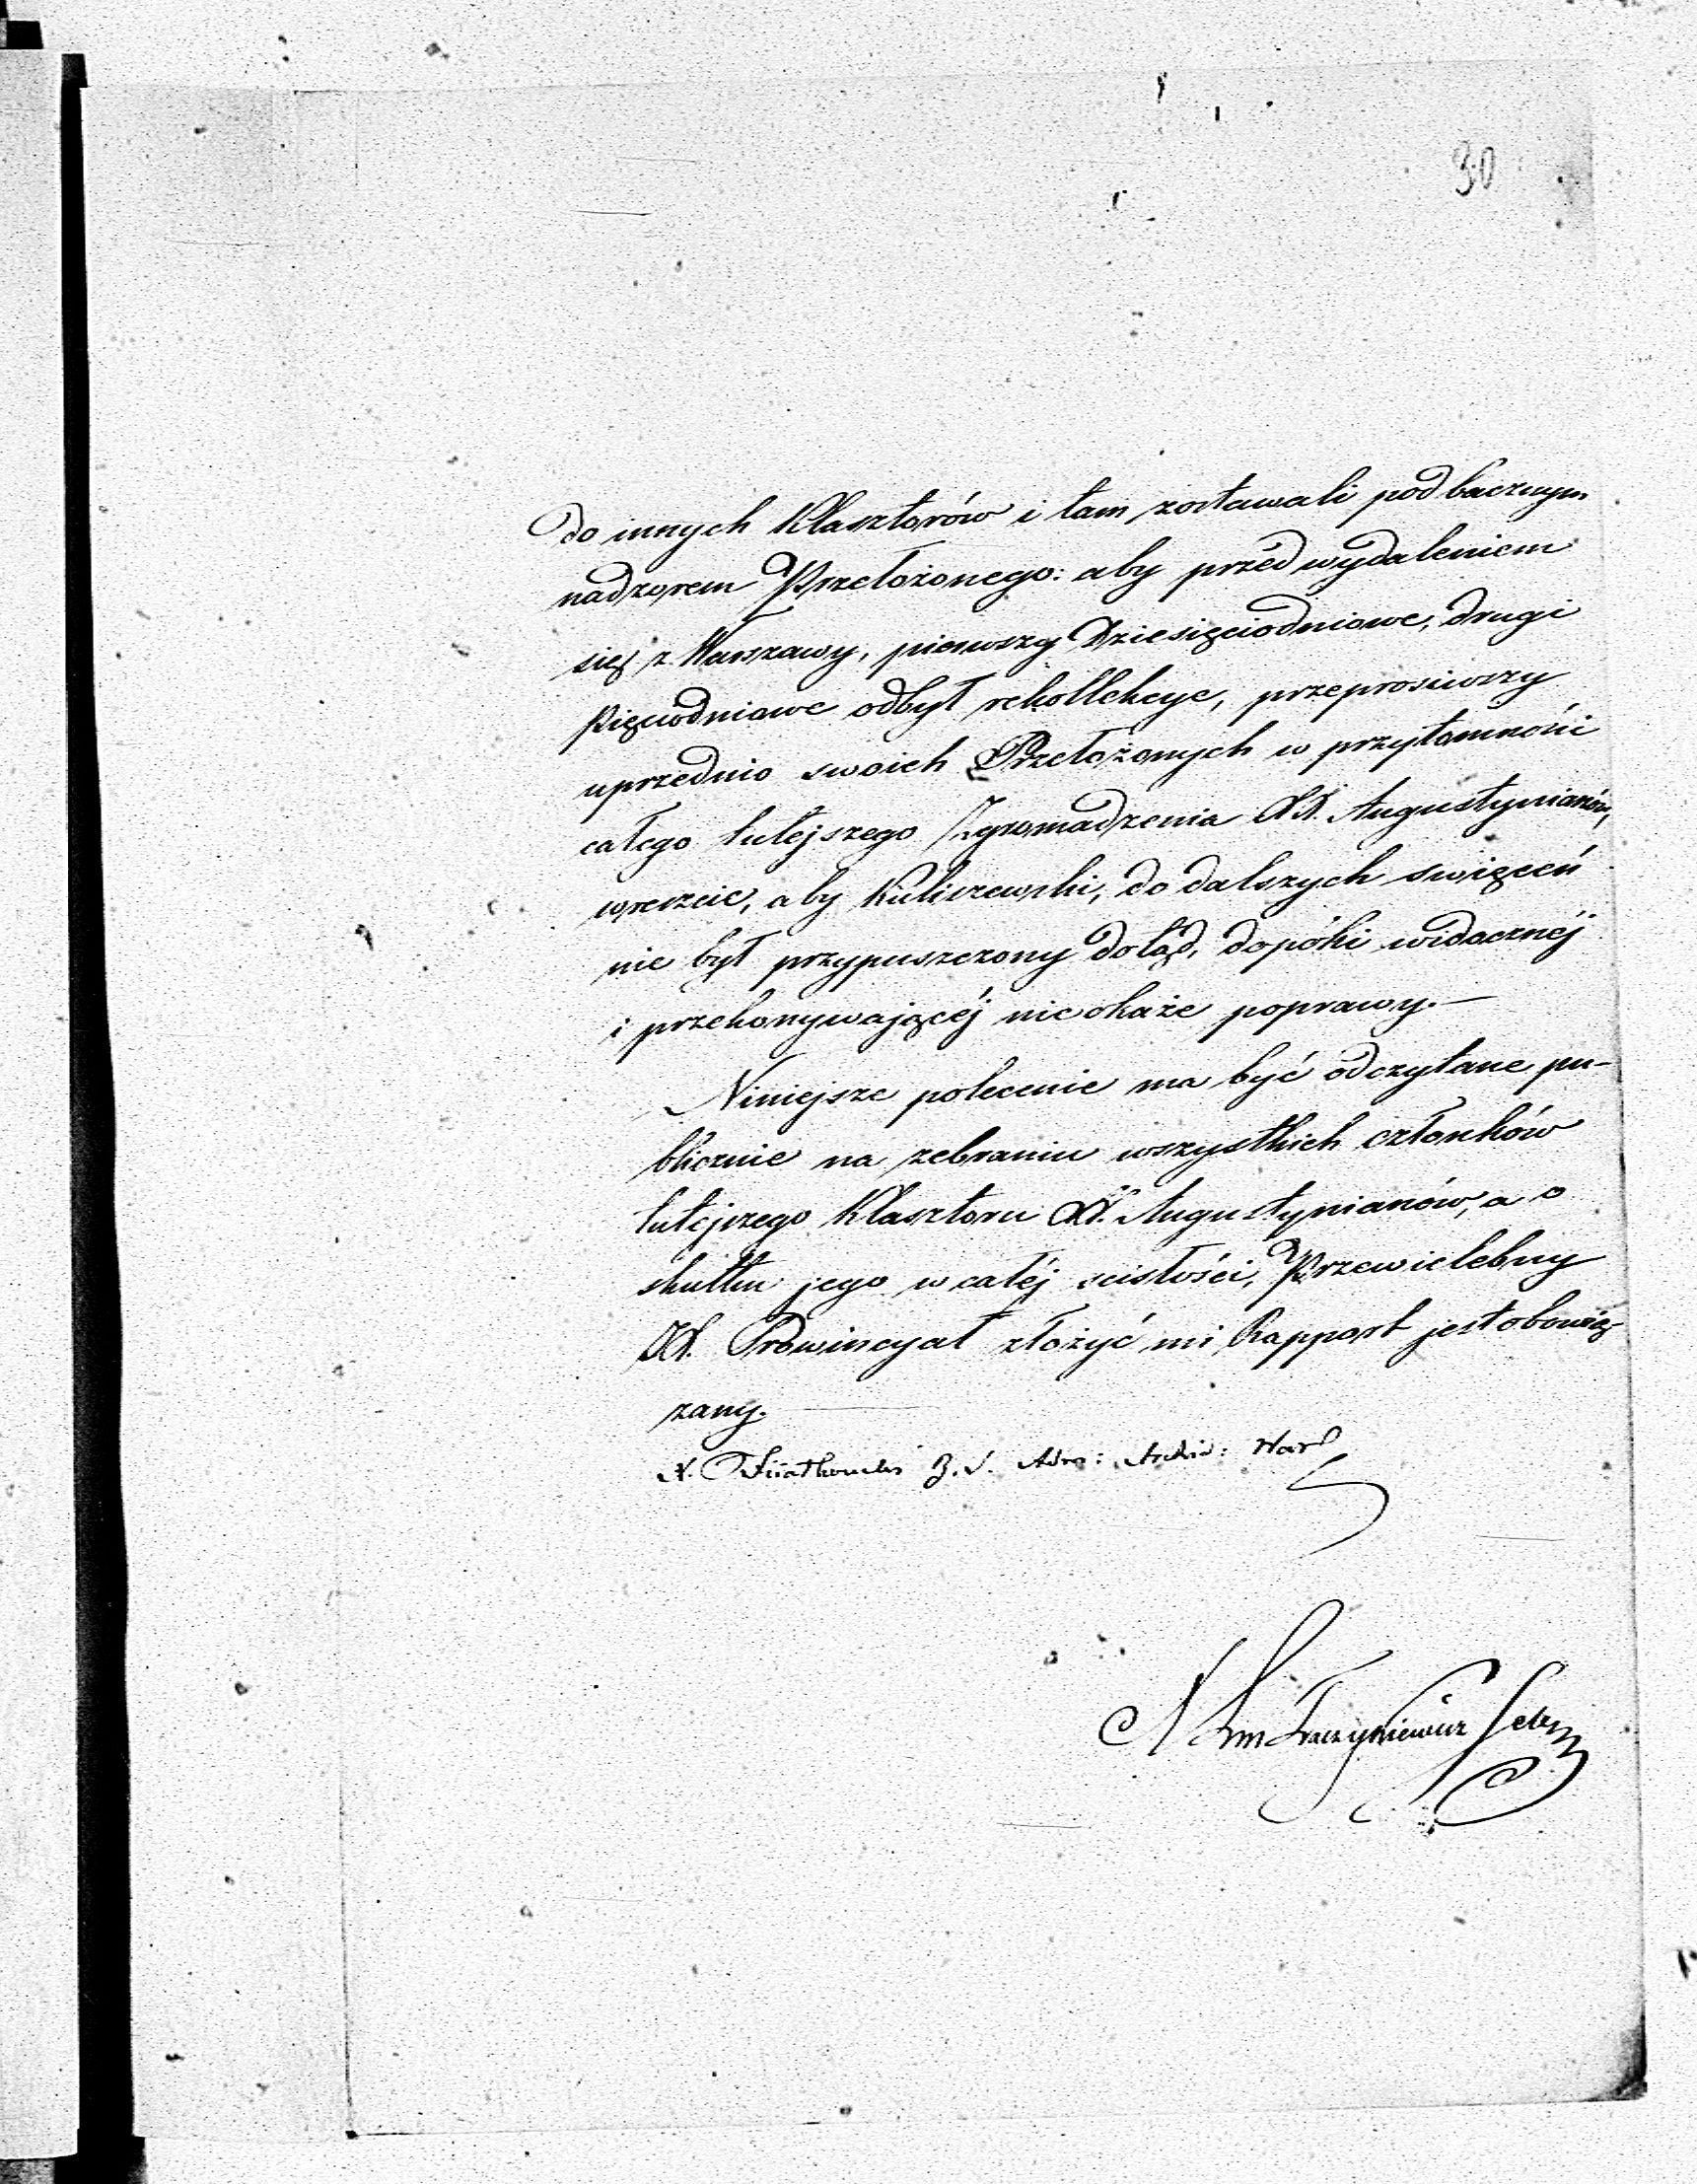 30
do innych Klasztorów i tam zostawali pod bacznym
nadzorem Przełożonego: aby przed wydaleniem
się z Warszawy, pierwszy Dziesięciodniowe, drugi
Pięciodniowe odbył rekollekcye, przeprosiwszy
uprzednio swoich Przełożonych w przytomności
całego tutejszego Zgromadzenia XX. Augustynianów,
wreszcie, aby Kuliszewski, do dalszych swięceń
nie był przypuszczony dotąd, dopóki widocznéj
i przekonywającéj nie okaże poprawy.—
Niniejsze polecenie ma być odczytane pu-
blicznie na zebraniu wszystkich członków
tutejszego Klasztoru XX. Augustynianów, a o
skutku jego w całéj scisłości, Przewielebny
X. Prowincyał złożyć mi Rapport jest obowią-
zany.
X. Fijałkowski B. N. Adm: Archid: Wars
X